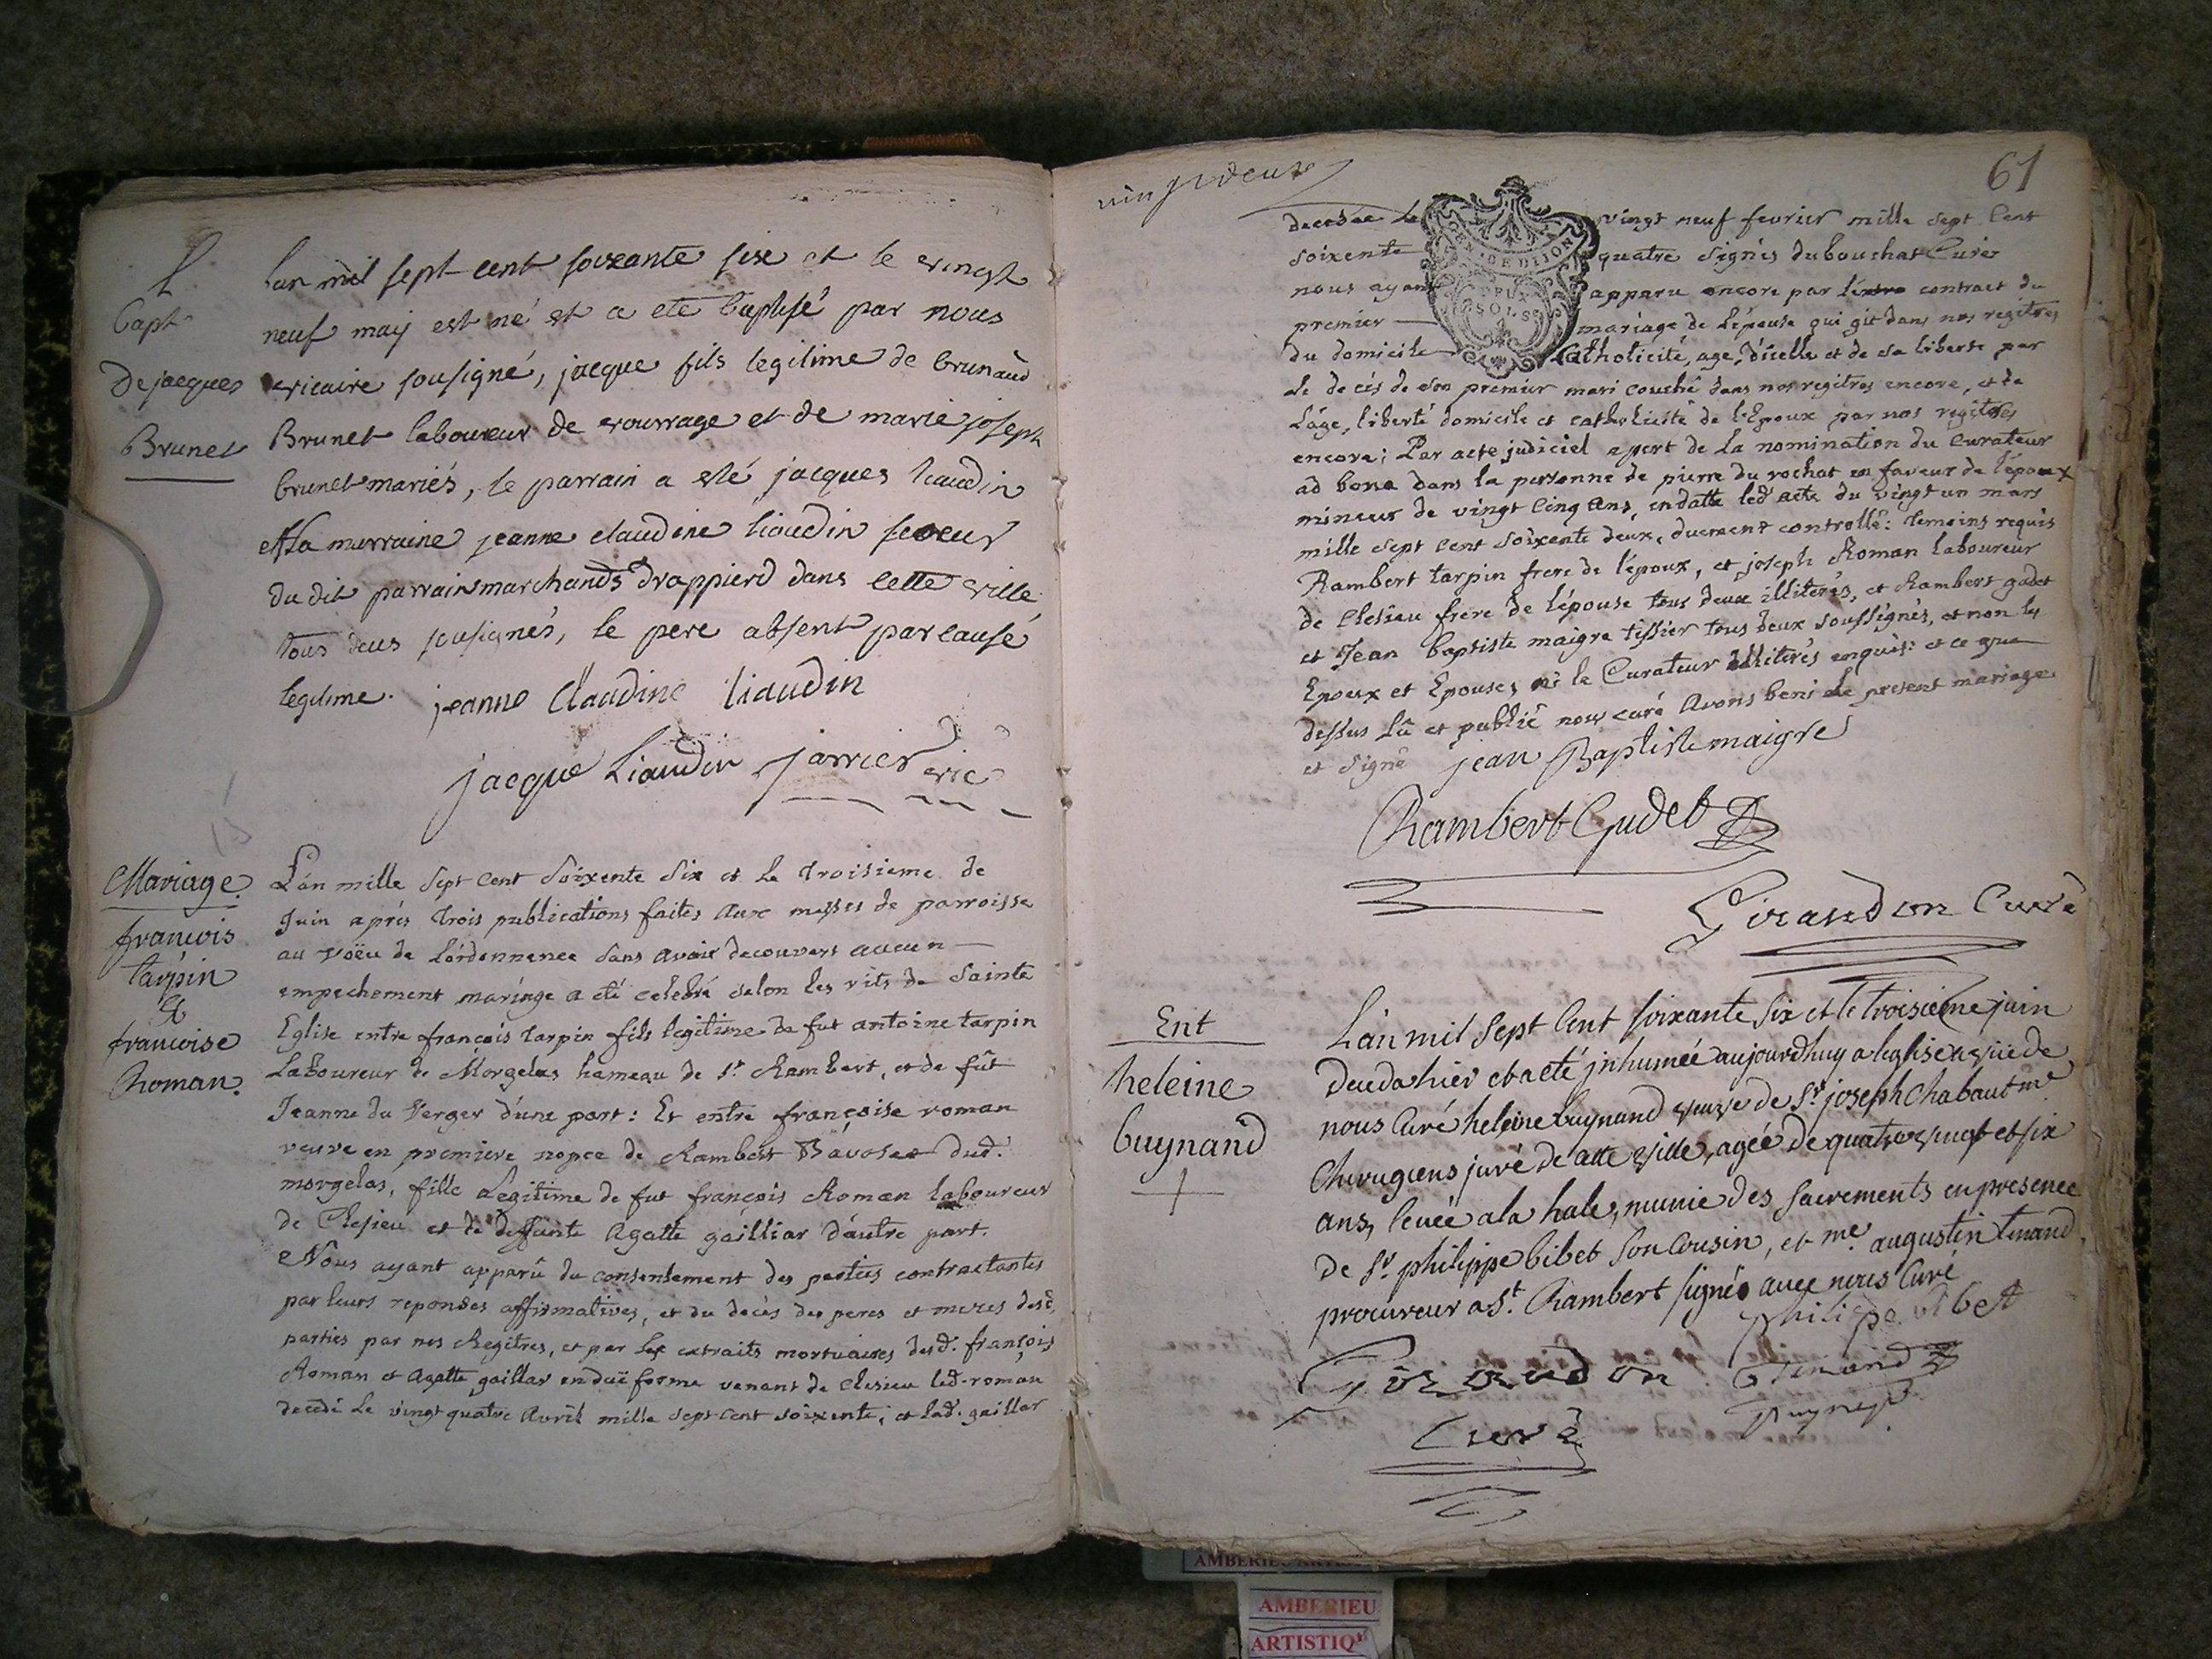 L
Bapt
De jacques
Brunet
Lan mil sept cent soixante six et le vingt
neuf maÿ est né et a ete baptisé par nous
vicaire sousigné, jacque fils legitime de brunaud
Brunet laboureur de vourrage et de marie joseph
brunet mariés, le parrain a eté jacques liaudin
et la marraine jeanne claudine liaudin soeur
du dit parrain marchands drappierd dans cette ville
tous deus sousignés, le pere absent par cause
legitime. jeanne Claudine liaudin
jacque Liaudin jarrier vic
Mariage
francois
tarpin
&
francoise
Roman.
L'an mille sept cent soixente six et le troisieme de
Juin aprés trois publications faites aux messes de parroisse
au voëu de l'ordonnence sans avoir decouvert aucun
empechement mariage a eté celebré selon les rits de sainte
Eglise entre françois tarpin fils legitime de fut antoine tarpin
Laboureur de Morgelas hameau de st Rambert, et de fût
Jeanne du Verger d'une part: Et entre françoise roman
veuve en premiere nopce de Rambert Bavoses dud.
morgelas, fille Legitime de fut françois Roman laboureur
de Clesieu et de deffunte Agatte gailliar d'autre part.
Nous ayant apparû du consentement des parties contractantes
par leurs reponses affirmatives, et du decès des peres et meres desd.
parties par nos Regitres, et par les extraits mortuaires desd. françois
Roman et Agatte gaillar en duë forme venant de Clesieu led. roman
decedé le vingt quatre avril mille sept cent soixente, et lad. gaillar
vingt deux
61
GEN. DE DIJON
DEUX SOLS
decedée le vingt neuf fevrier mille sept cent
soixente quatre signés dubouchat Curés
nous ayant apparu encore par contract du
premier mariage de l'épouse qui git dans nos regitres
du domicile Catholicité, age, d'icelle et de sa liberté par
Le decés de son premier mari couché dans nos regitres encore, et de
l'âge, liberté domicile et catholicité de l'Epoux par nos regitres
encore; Par acte judiciel apert de la nomination du curateur
ad bona dans la personne de pierre du rochat en faveur de l'époux
mineur de vingt cinq ans, en datte led acte du vingt un mars
mille sept cent soixente deux, duement controllé: temoins requis
Rambert tarpin frere de l'époux, et joseph Roman laboureur
de Clesieu frere de l'épouse tous deux illiterés, et Rambert gudet
et Jean baptiste maigre tissier tous deux soussignés, et non les
Epoux et Epouse, ni le Curateur illiterés enquis: et ce que
dessus lû et publié nous curé Avons beni le present mariage
et signé jean Baptiste maigre
Rambert Gudet
Giraudon Curé
Ent
heleine
buynand
+
L'an mil sept cent soixante six et le troisieme juin
deceda hier et a eté jnhumée aujourdhuy a leglise
nous Curé heleine buynand veuve de Sr joseph Chabaut me
Chirugiens juré de cette ville, agée de quatre vingt et six
ans, levée a la hale, munie des sacrements en presence
de Sr philippe bibet son Cousin, et me augustin tenand
procureur a St Rambert signés avec nous Curé
philipe bibet
Giraudon
Curé
Tenand
AMBERIEU
ARTISTIQ